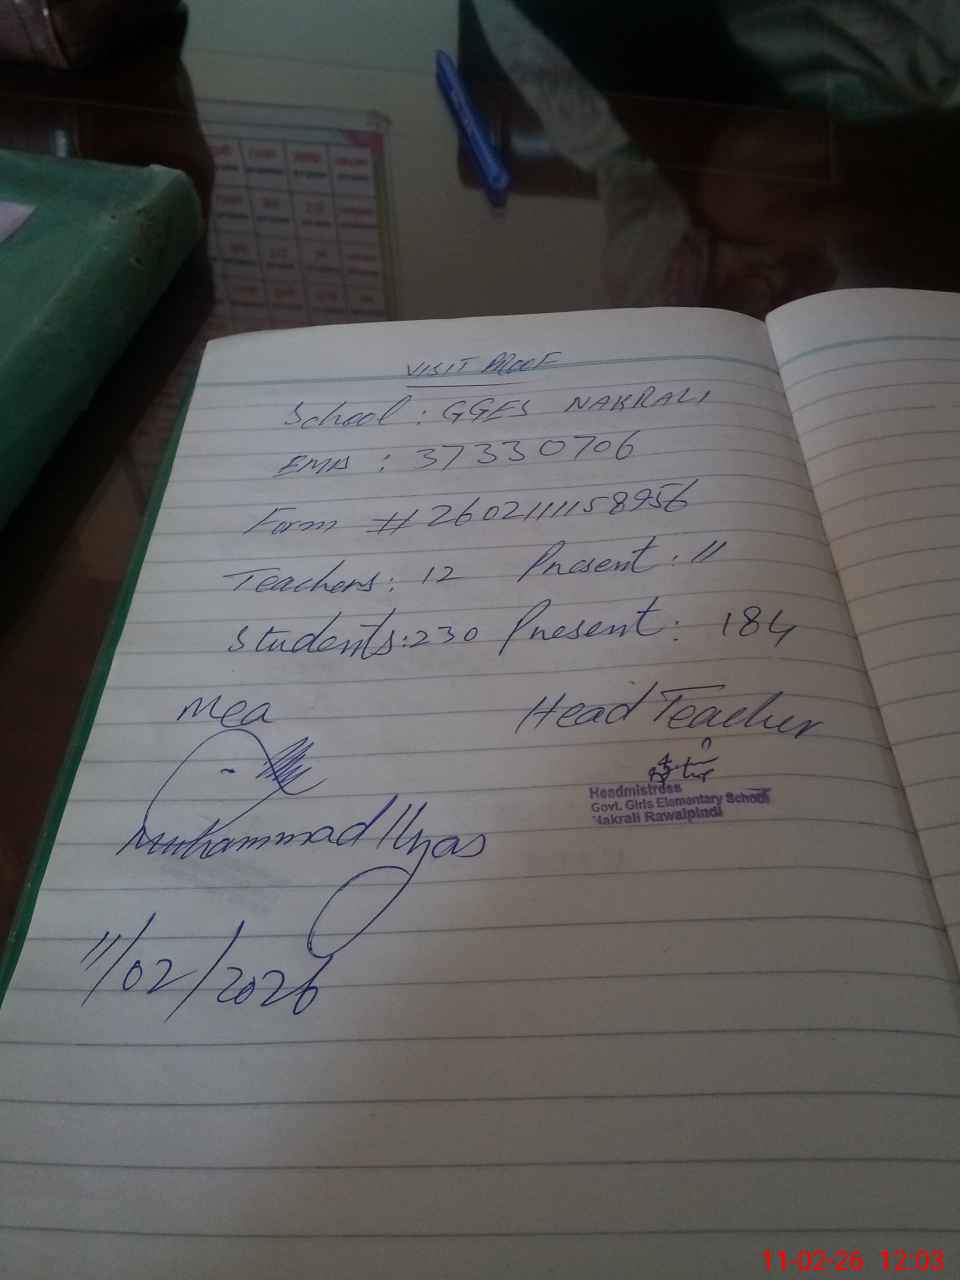 VISIT PROOF
School : GGES NAKRALI
EMIS : 37330706
Form # 260211158956
Teachers: 12 Present: 11
Students: 230 Present: 184
Mea Head Teacher
Headmistress
Govt. Girls Elementary School
Nakrali Rawalpindi
Muhammad Ilyas
11/02/2026
11-02-26 12:03